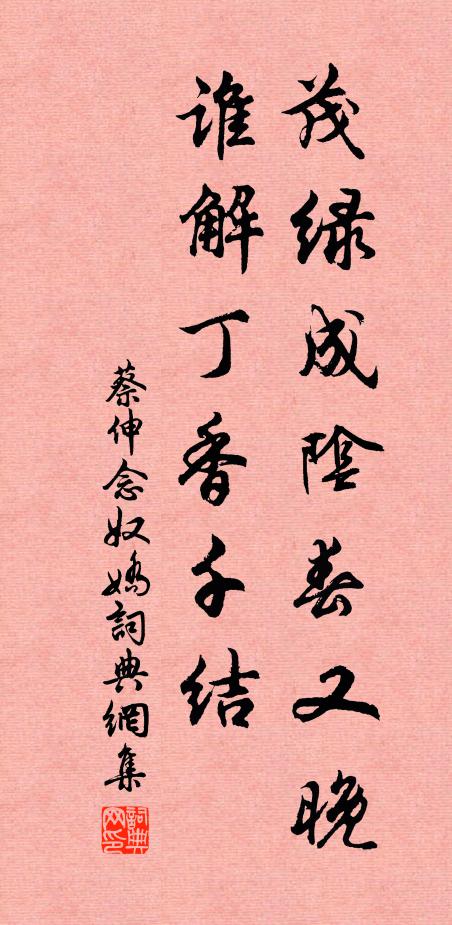 茂绿成陰春又晚
谁解丁香千结
蔡伸念奴嬌詞典網集
詞典网印